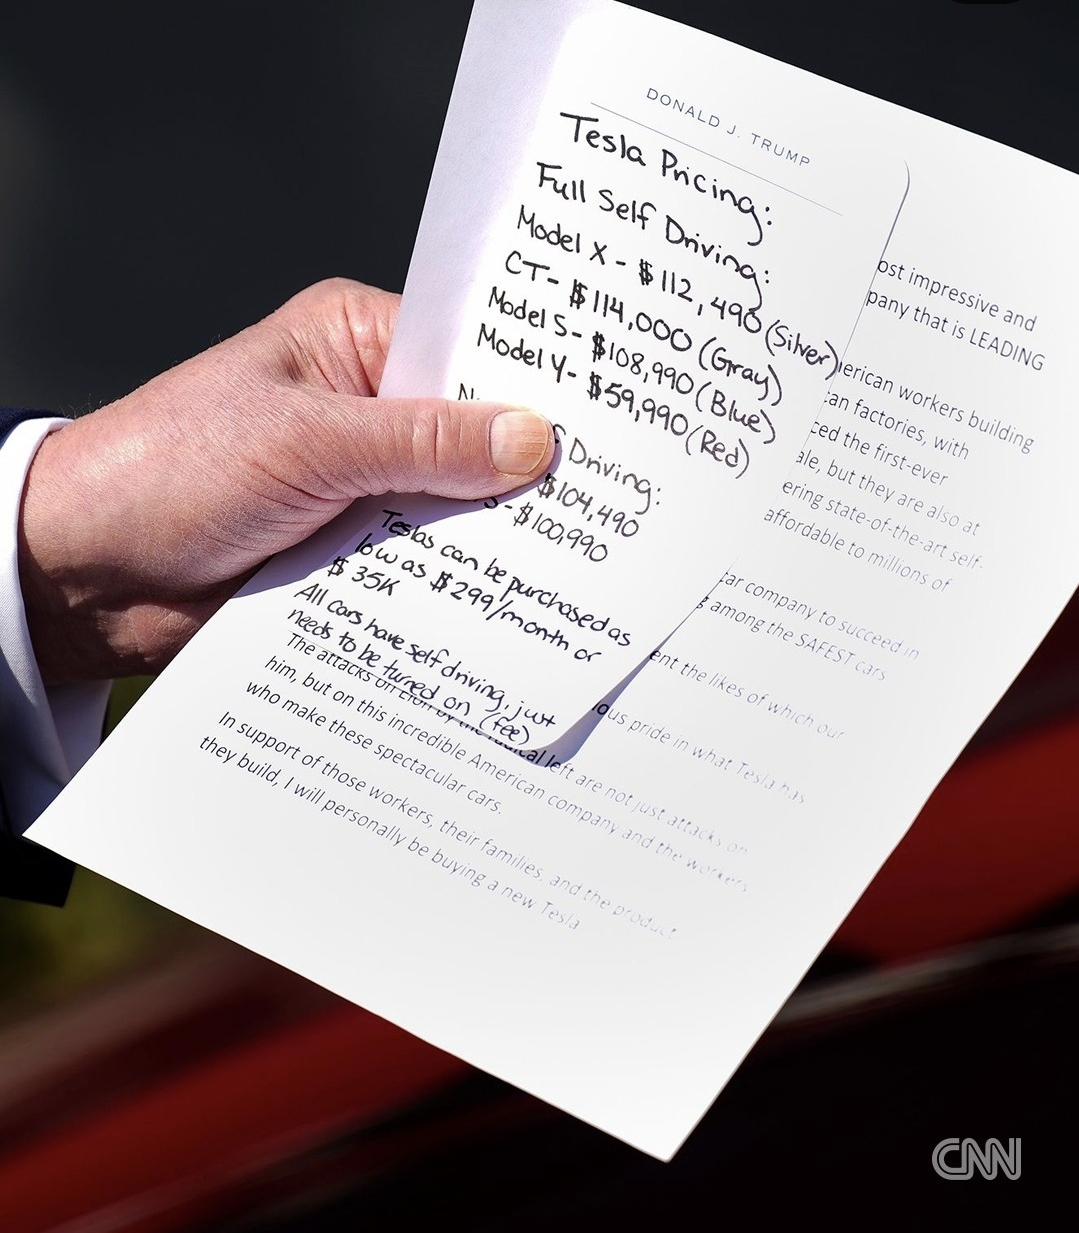 DONALD J. TRUMP
Tesla Pricing:
Full Self Driving:
Model X - $112,490 (Silver)
CT - $114,000 (Gray)
Model S - $108,990 (Blue)
Model Y - $59,990 (Red)
Driving:
$104,490
S - $100,990
Teslas can be purchased as
low as $299/month or
$35K
All cars have self driving, just
needs to be turned on (fee)
ost impressive and
pany that is LEADING
erican workers building
can factories, with
ced the first-ever
ale, but they are also at
ering state-of-the-art self-
affordable to millions of
car company to succeed in
among the SAFEST cars
ent the likes of which our
ious pride in what Tesla has
The attacks on Elon by the radical left are not just attacks on
him, but on this incredible American company and the workers
who make these spectacular cars.
In support of those workers, their families, and the product
they build, I will personally be buying a new Tesla
CNN